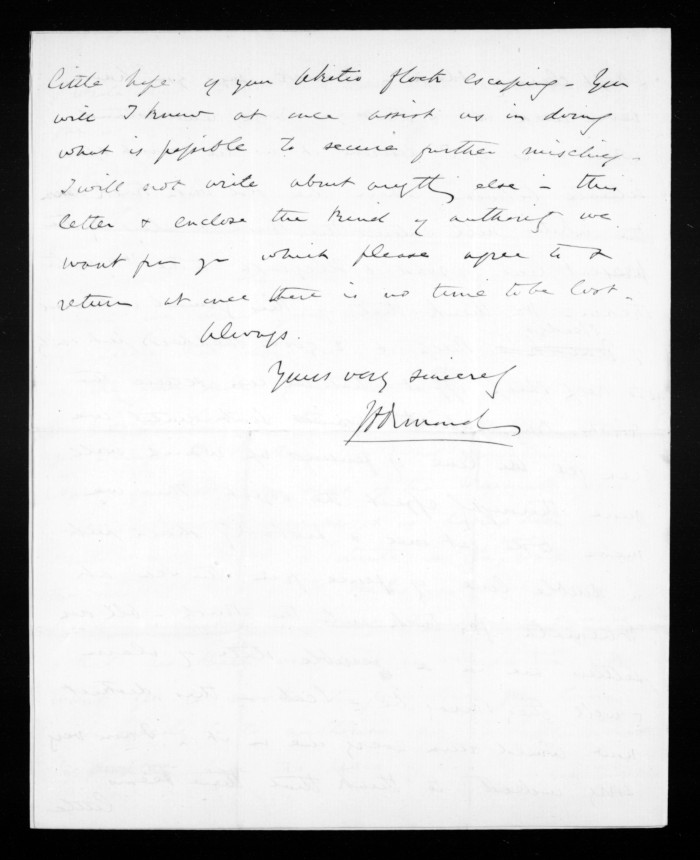 little hope of your flock escaping - You
will I know at once assist us in doing
what is possible to secure further mischief -
I will not write about anything else - this
letter & enclose the kind of authority we
want from you which please agree to &
return at once there is no time to be lost -
Always
Yours very sincerely
JD Ormond